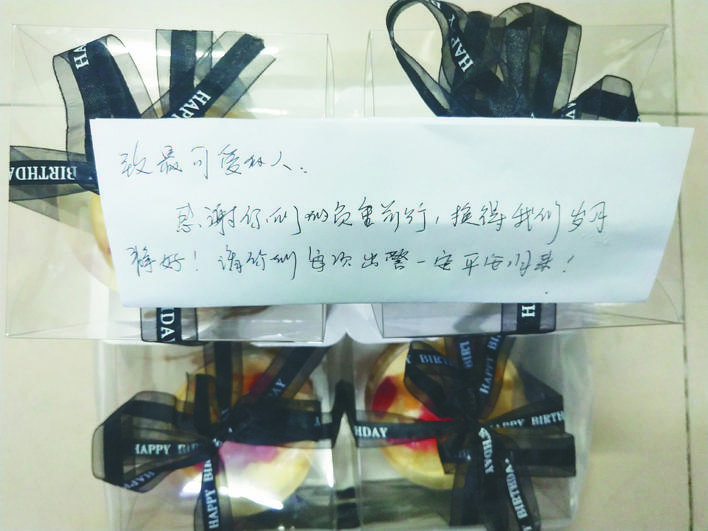 HAPPY
BIRTHDAY
HAPPY
HAPPY
BIRTHDAY
致最可爱的人：
感谢你们的负重前行，换得我们岁月
静好！请你们每次出警一定平安归来！
THDAY
HAPPY
BIRTHDAY
HAPPY BIRTHDAY
HAPPY BIRTH
THDAY
HAPPY BIRT
HAPPY BIRTH
HAPPY BIRTH
HDAY
HAPPY
BIRTHDAY